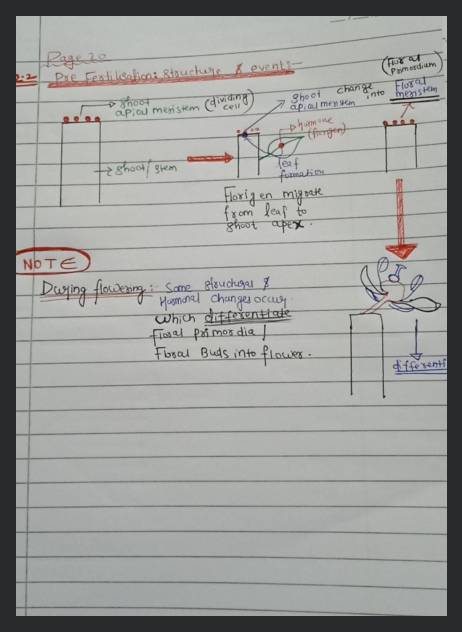 Page 20
2.2 Pre Fertilisation: Structure & event:-
shoot
apical meristem (dividing
cell)
shoot/stem
shoot
apical meristem
change
into
(Floral
primordium)
Floral
meristem
hormone
(florigen)
leaf
formation
Florigen migrate
from leaf to
shoot apex.
NOTE
During flowering:- Some structural &
Hormonal changes occur
which differentiate
Floral primordia/
Floral Buds into flower.
differenti